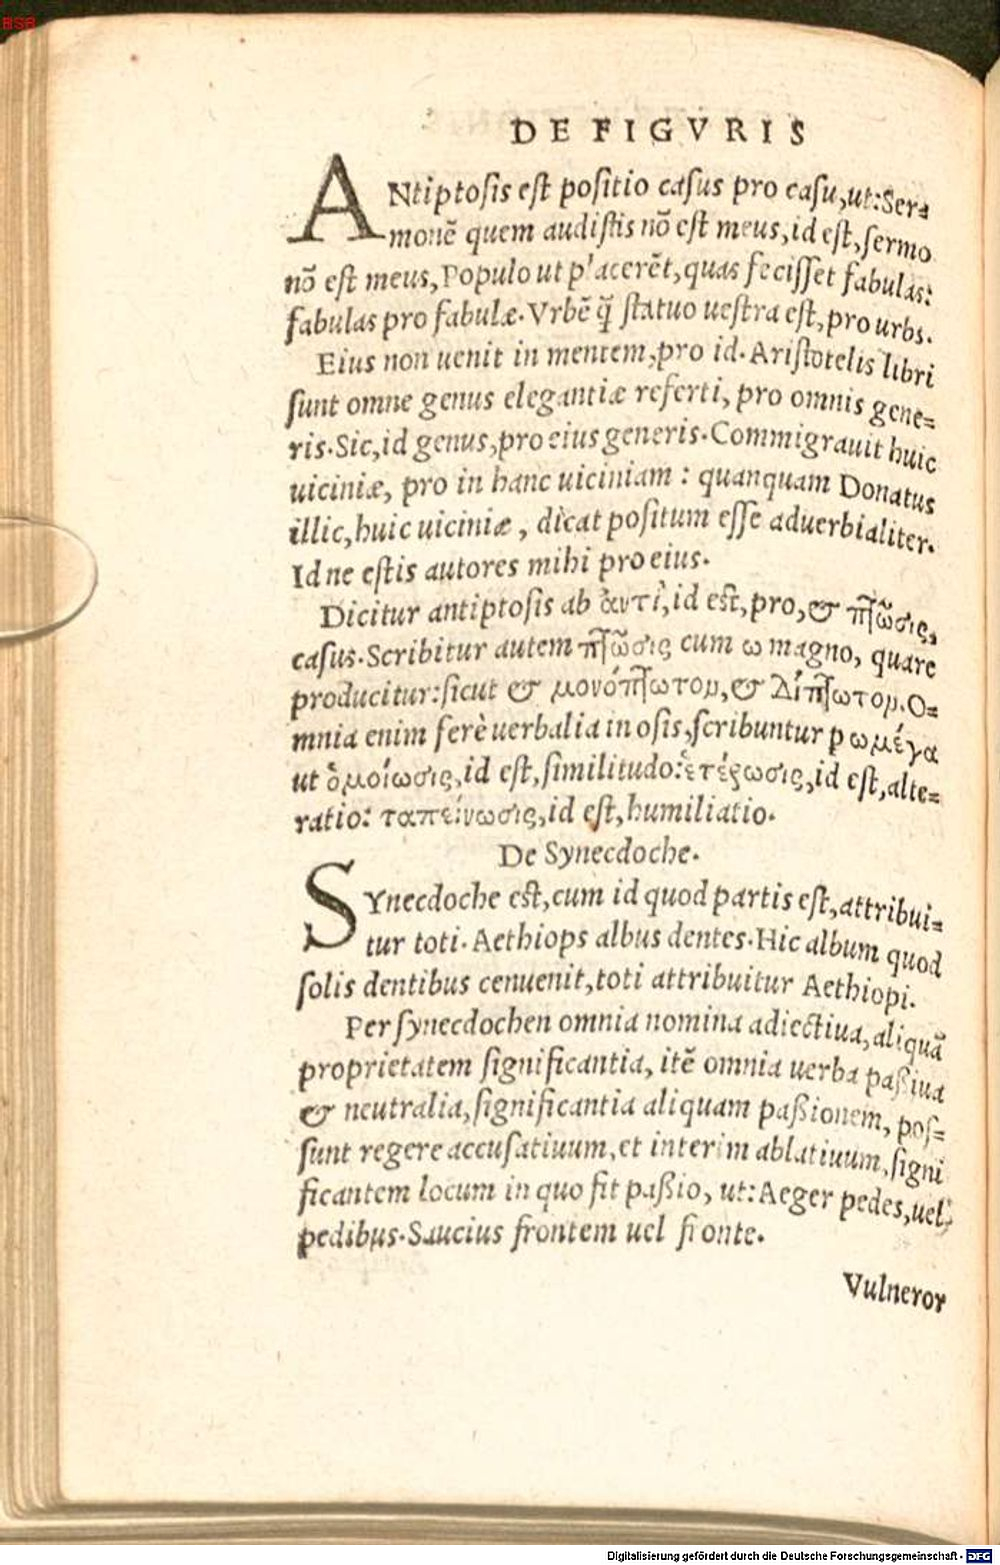 BSB
DE FIGVRIS
ANtiptosis est positio casus pro casu, ut: Ser=
monē quem audistis nō est meus, id est, sermo
nō est meus, Populo ut placerēt, quas fecisset fabulas:
fabulas pro fabulæ. Vrbē q̄ statuo uestra est, pro urbs.
Eius non uenit in mentem, pro id. Aristotelis libri
sunt omne genus elegantiæ referti, pro omnis gene=
ris. Sic, id genus, pro eius generis. Commigrauit huic
uiciniæ, pro in hanc uiciniam: quanquam Donatus
illic, huic uiciniæ, dicat positum esse aduerbialiter.
Id ne estis autores mihi pro eius.
Dicitur antiptosis ab ἀντὶ, id est, pro, & πτῶσις,
casus. Scribitur autem πτῶσις cum ω magno, quare
producitur: sicut & μονόπτωτον, & δίπτωτον. O=
mnia enim ferè uerbalia in osis, scribuntur p ω μέγα
ut ὁμοίωσις, id est, similitudo: ἑτέρωσις, id est, alte=
ratio: ταπείνωσις, id est, humiliatio.
De Synecdoche.
SYnecdoche est, cum id quod partis est, attribui=
tur toti. Aethiops albus dentes. Hic album quod
solis dentibus cenuenit, toti attribuitur Aethiopi.
Per synecdochen omnia nomina adiectiua, aliquā
proprietatem significantia, itē omnia uerba paßiua
& neutralia, significantia aliquam paßionem, pos=
sunt regere accusatiuum, et interim ablatiuum, signi
ficantem locum in quo fit paßio, ut: Aeger pedes, uel
pedibus. Saucius frontem uel fronte.
Vulneror
Digitalisierung gefördert durch die Deutsche Forschungsgemeinschaft - DFG